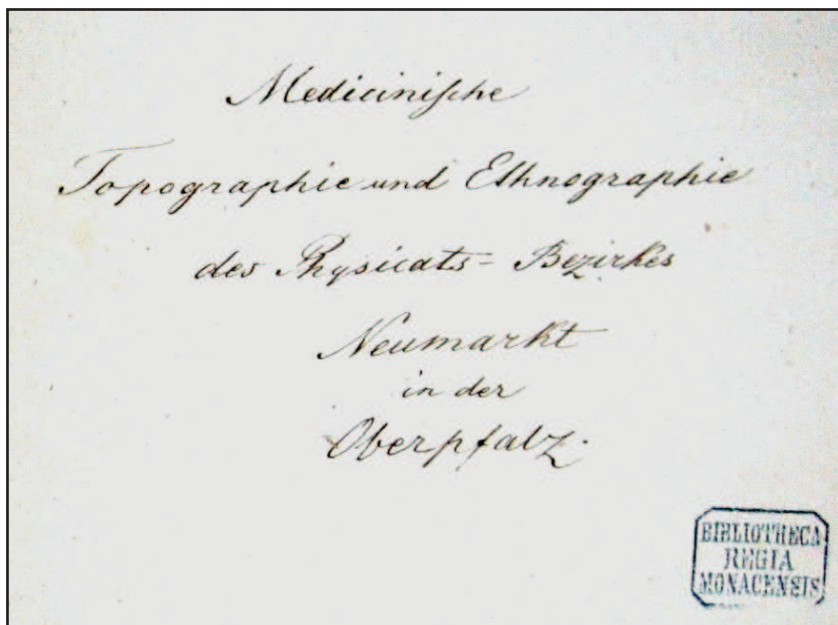 Medicinische
Topographie und Ethnographie
des Physicats= Bezirkes
Neumarkt
in der
Oberpfalz.
BIBLIOTHECA
REGIA
MONACENSIS